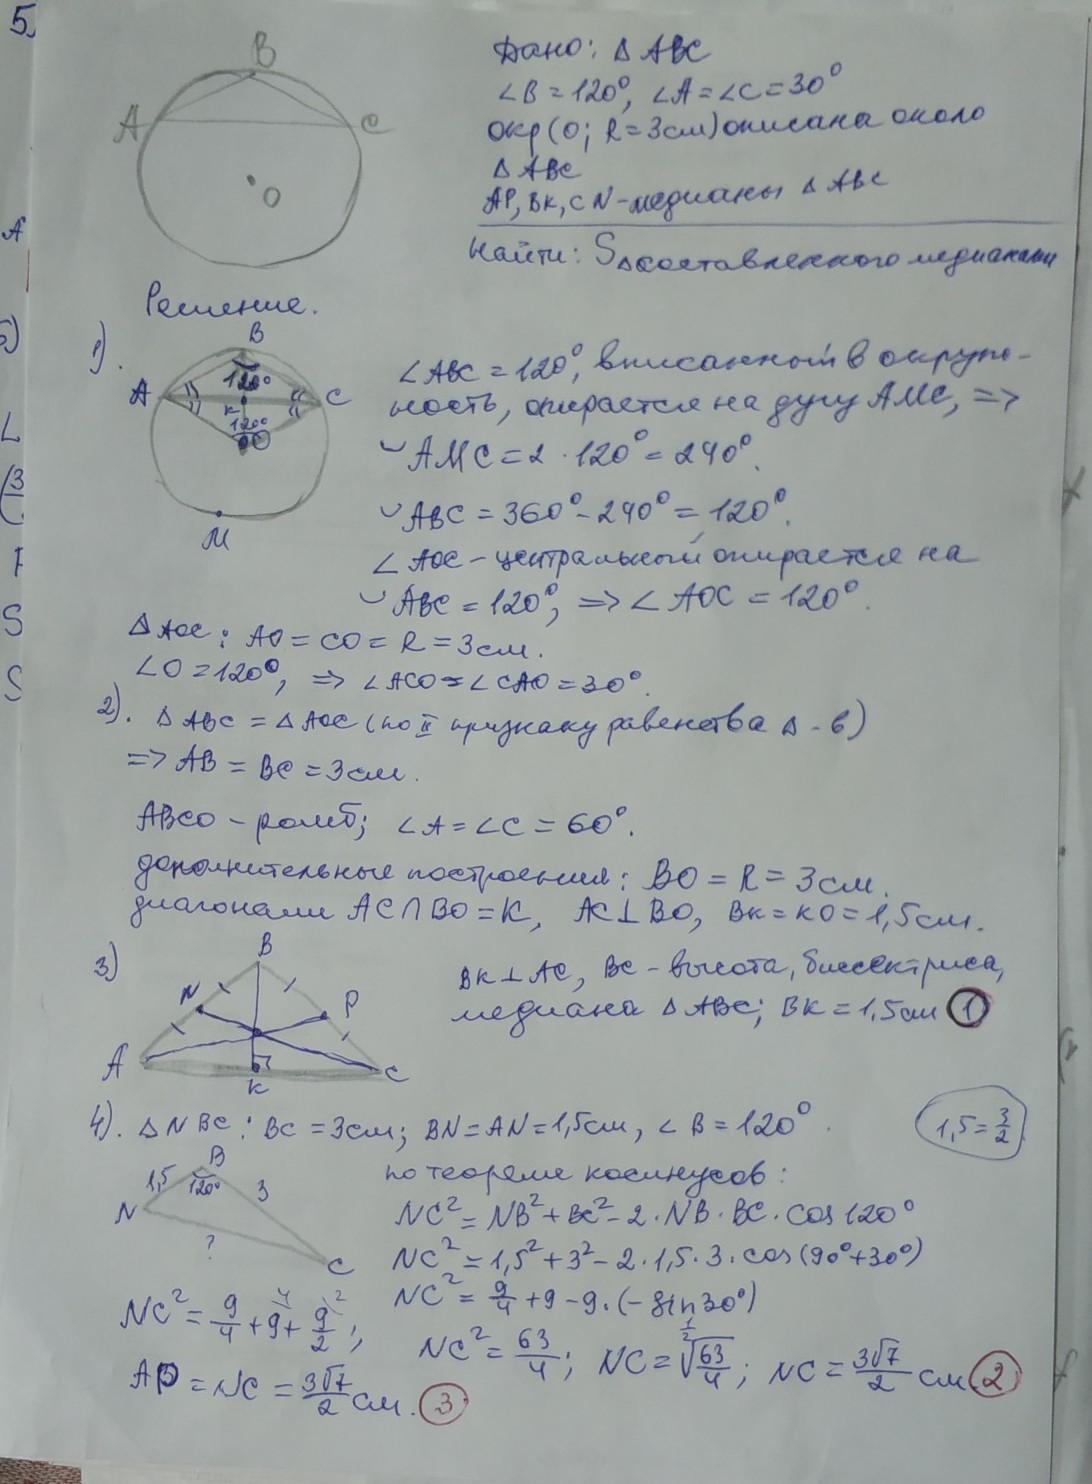 5.
B
A
C
O
Дано: Δ ABC
∠B = 120°, ∠A = ∠C = 30°
окр (O; R = 3 см) описана около
Δ ABC
AP, BK, CN - медианы Δ ABC
Найти: SΔ составленного медианами
Решение.
1).
B
120°
A
K
C
120°
O
M
∠ABC = 120°, вписанный в окруж-
ность, опирается на дугу AMC, =>
◡ AMC = 2 · 120° = 240°.
◡ ABC = 360° - 240° = 120°.
∠ AOC - центральный опирается на
◡ ABC = 120°, => ∠ AOC = 120°.
Δ AOC: AO = CO = R = 3 см.
∠O = 120°, => ∠ACO = ∠CAO = 30°.
2). Δ ABC = Δ AOC (по II признаку равенства Δ-в)
=> AB = BC = 3 см.
ABCO - ромб; ∠A = ∠C = 60°.
дополнительные построения: BO = R = 3 см.
диагонали AC ∩ BO = K, AC ⊥ BO, BK = KO = 1,5 см.
3)
B
N
P
A
K
C
BK ⊥ AC, BC - высота, биссектриса,
медиана Δ ABC; BK = 1,5 см 1
4). Δ NBC: BC = 3 см; BN = AN = 1,5 см, ∠ B = 120°.
1,5 = 3/2
B
1,5
120°
3
N
?
C
по теореме косинусов:
NC² = NB² + BC² - 2 · NB · BC · cos 120°
NC² = 1,5² + 3² - 2 · 1,5 · 3 · cos (90° + 30°)
NC² = 9/4 + 9 - 9 · (- sin 30°)
NC² = 9/4 + 9 + 9/2;
NC² = 63/4; NC = √63/4; NC = 3√7/2 см 2
AP = NC = 3√7/2 см. 3